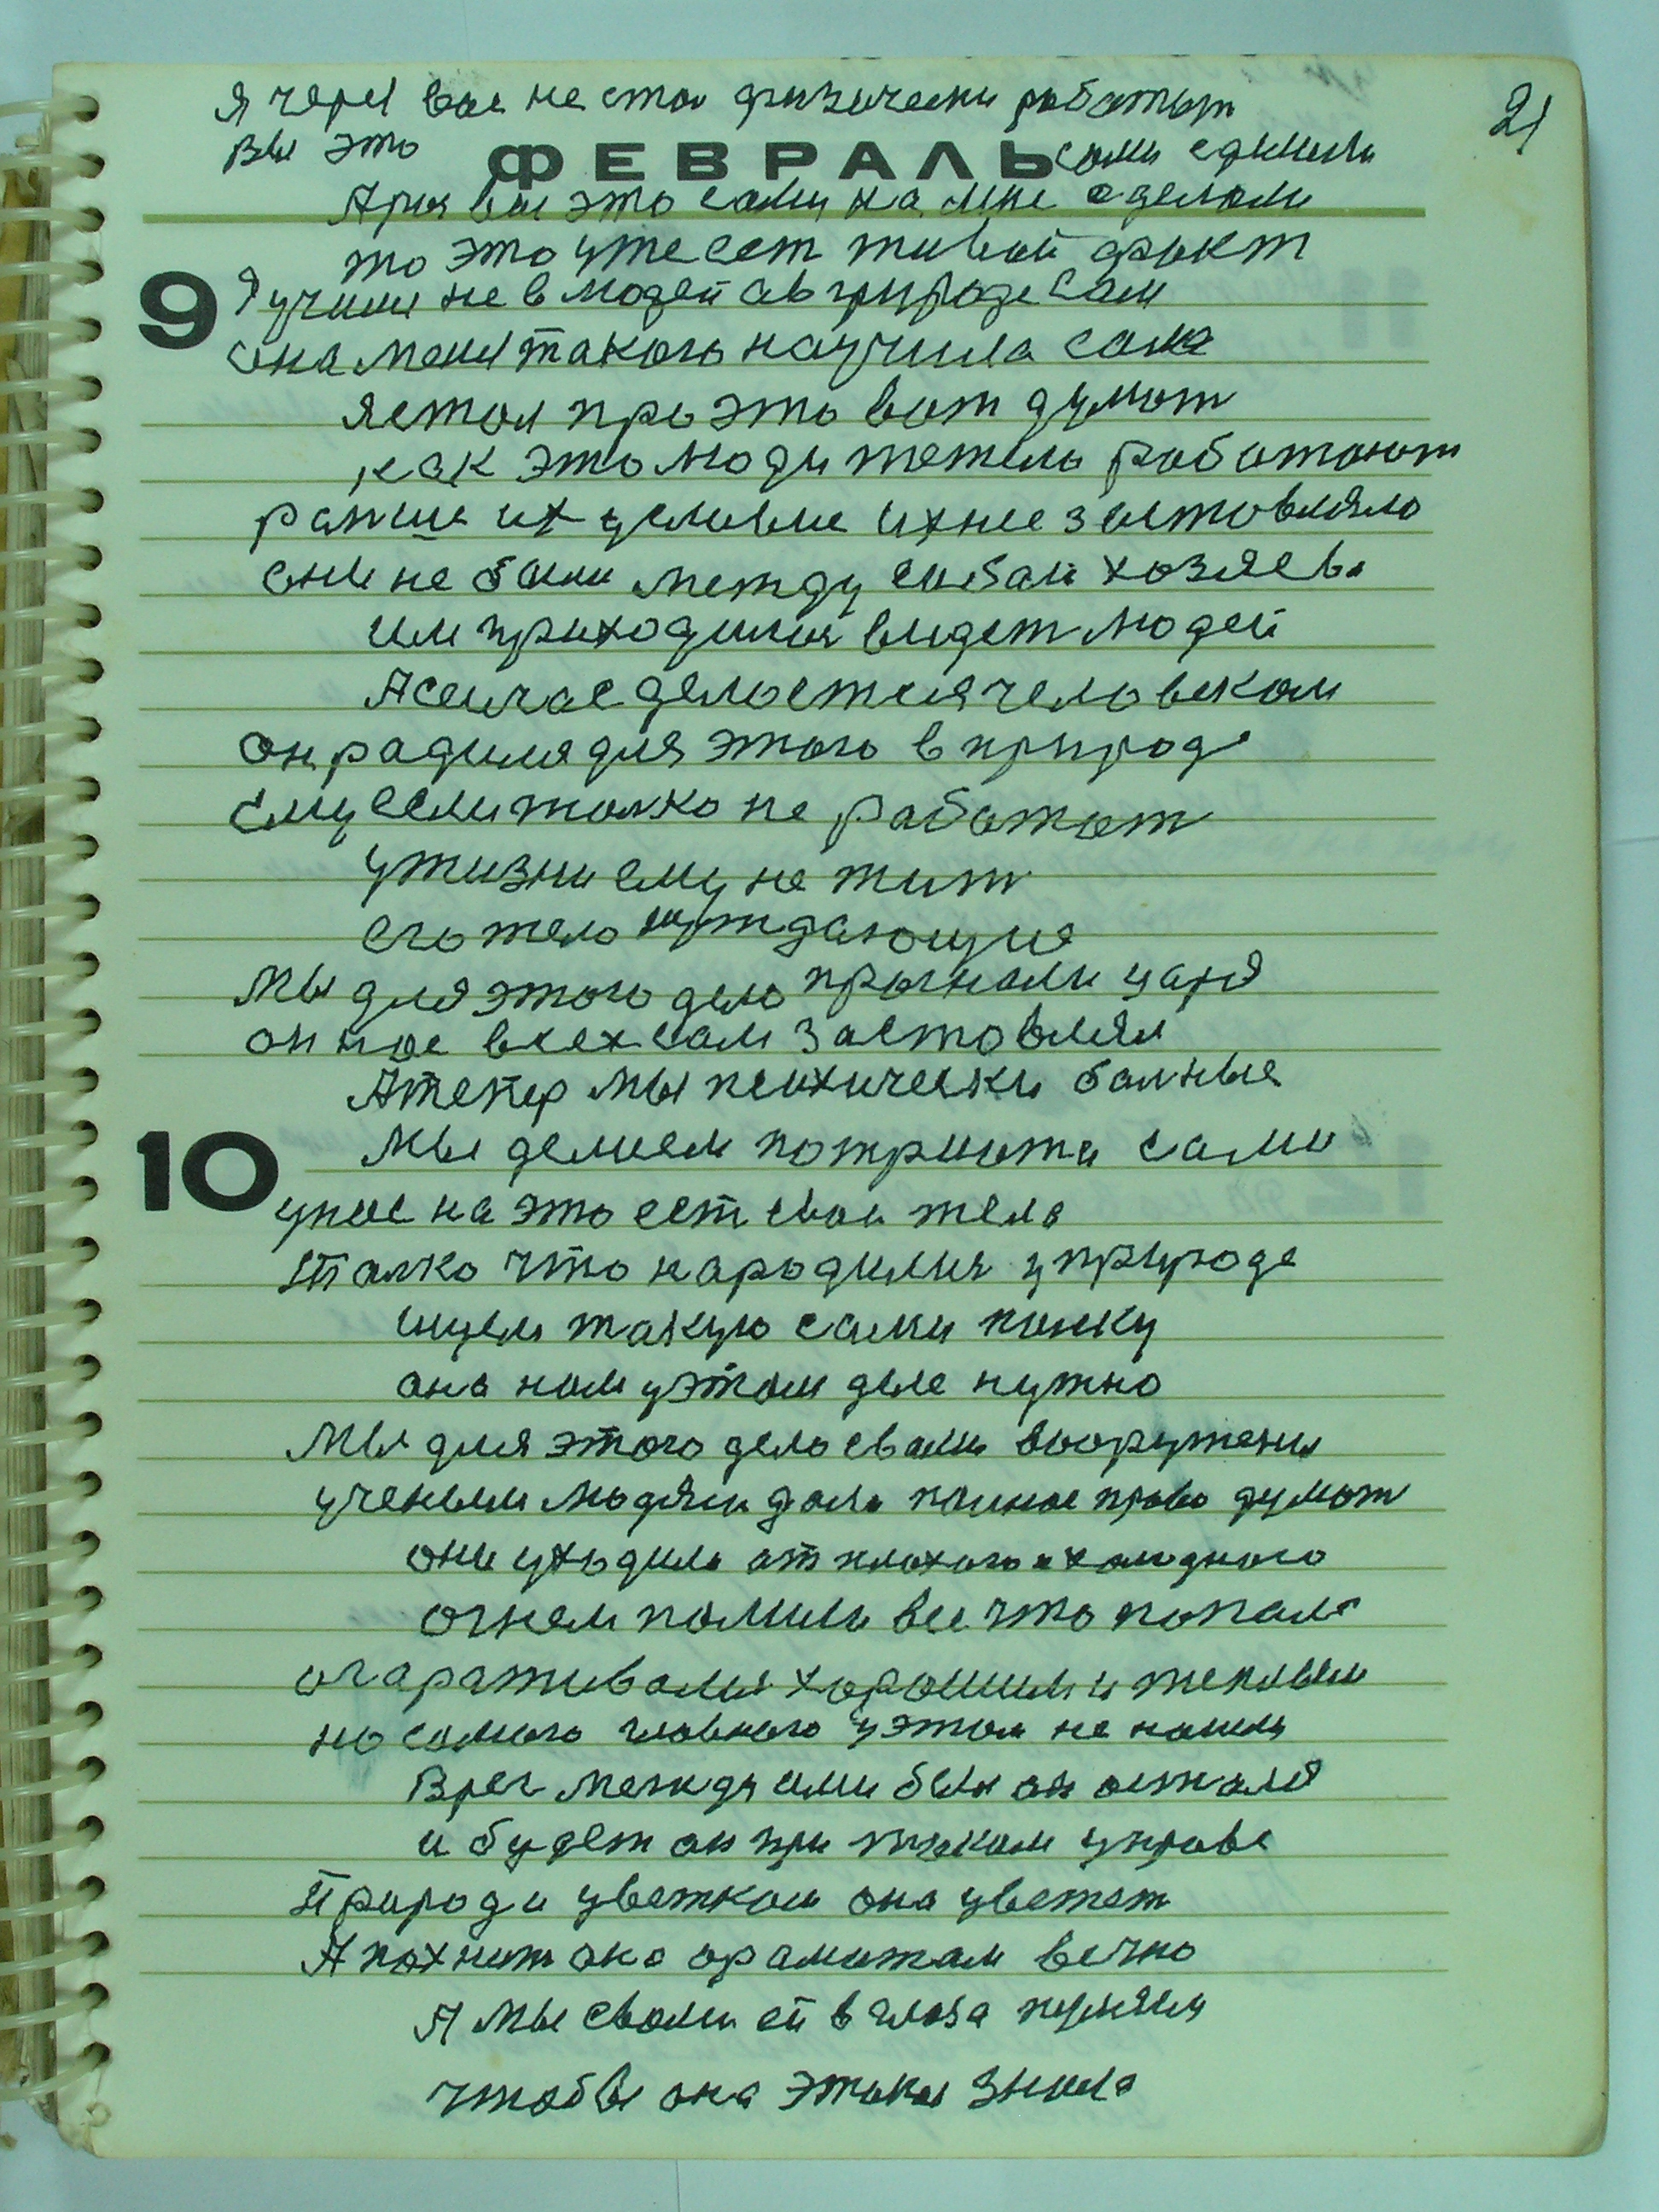 я через вас не стал физически работат
21
вы это сами сдииали
ФЕВРАЛЬ
А раз вы это сами на мне сделали
то это уже ест живой факт
9
Я учился не в людей а в природе сам
она меня такого научила сама
я стал про это вот думат
как это люди тежело работают
раньше их условие ихнее застовляло
они не были между собой хозяева
им приходился видет людей
А сейчас делается человеком
он радился для этого в природе
ему если толко не работат
у жизни ему не жит
его тело нуждающие
Мы для этого дело прогнали царя
он нас всех сам застовлял
А тепер мы психически болные
10
Мы делаем потриоти сами
у нас на это ест свои тела
Толко что народился у природе
ищем такую сами поиску
она нам у этом деле нужно
Мы для этого дело свами вооружени
ученым людям дали полное право думат
они уходили от плохого и холодного
огнем палили все что попало
огараживался хорошим и теплым
но самого главного у этом не нашли
Враг между ими был он остался
и будет он при таком управе
Природа цветком она цветет
А пахнит она араматам вечно
А мы свами ей в глаза
чтобы она знала